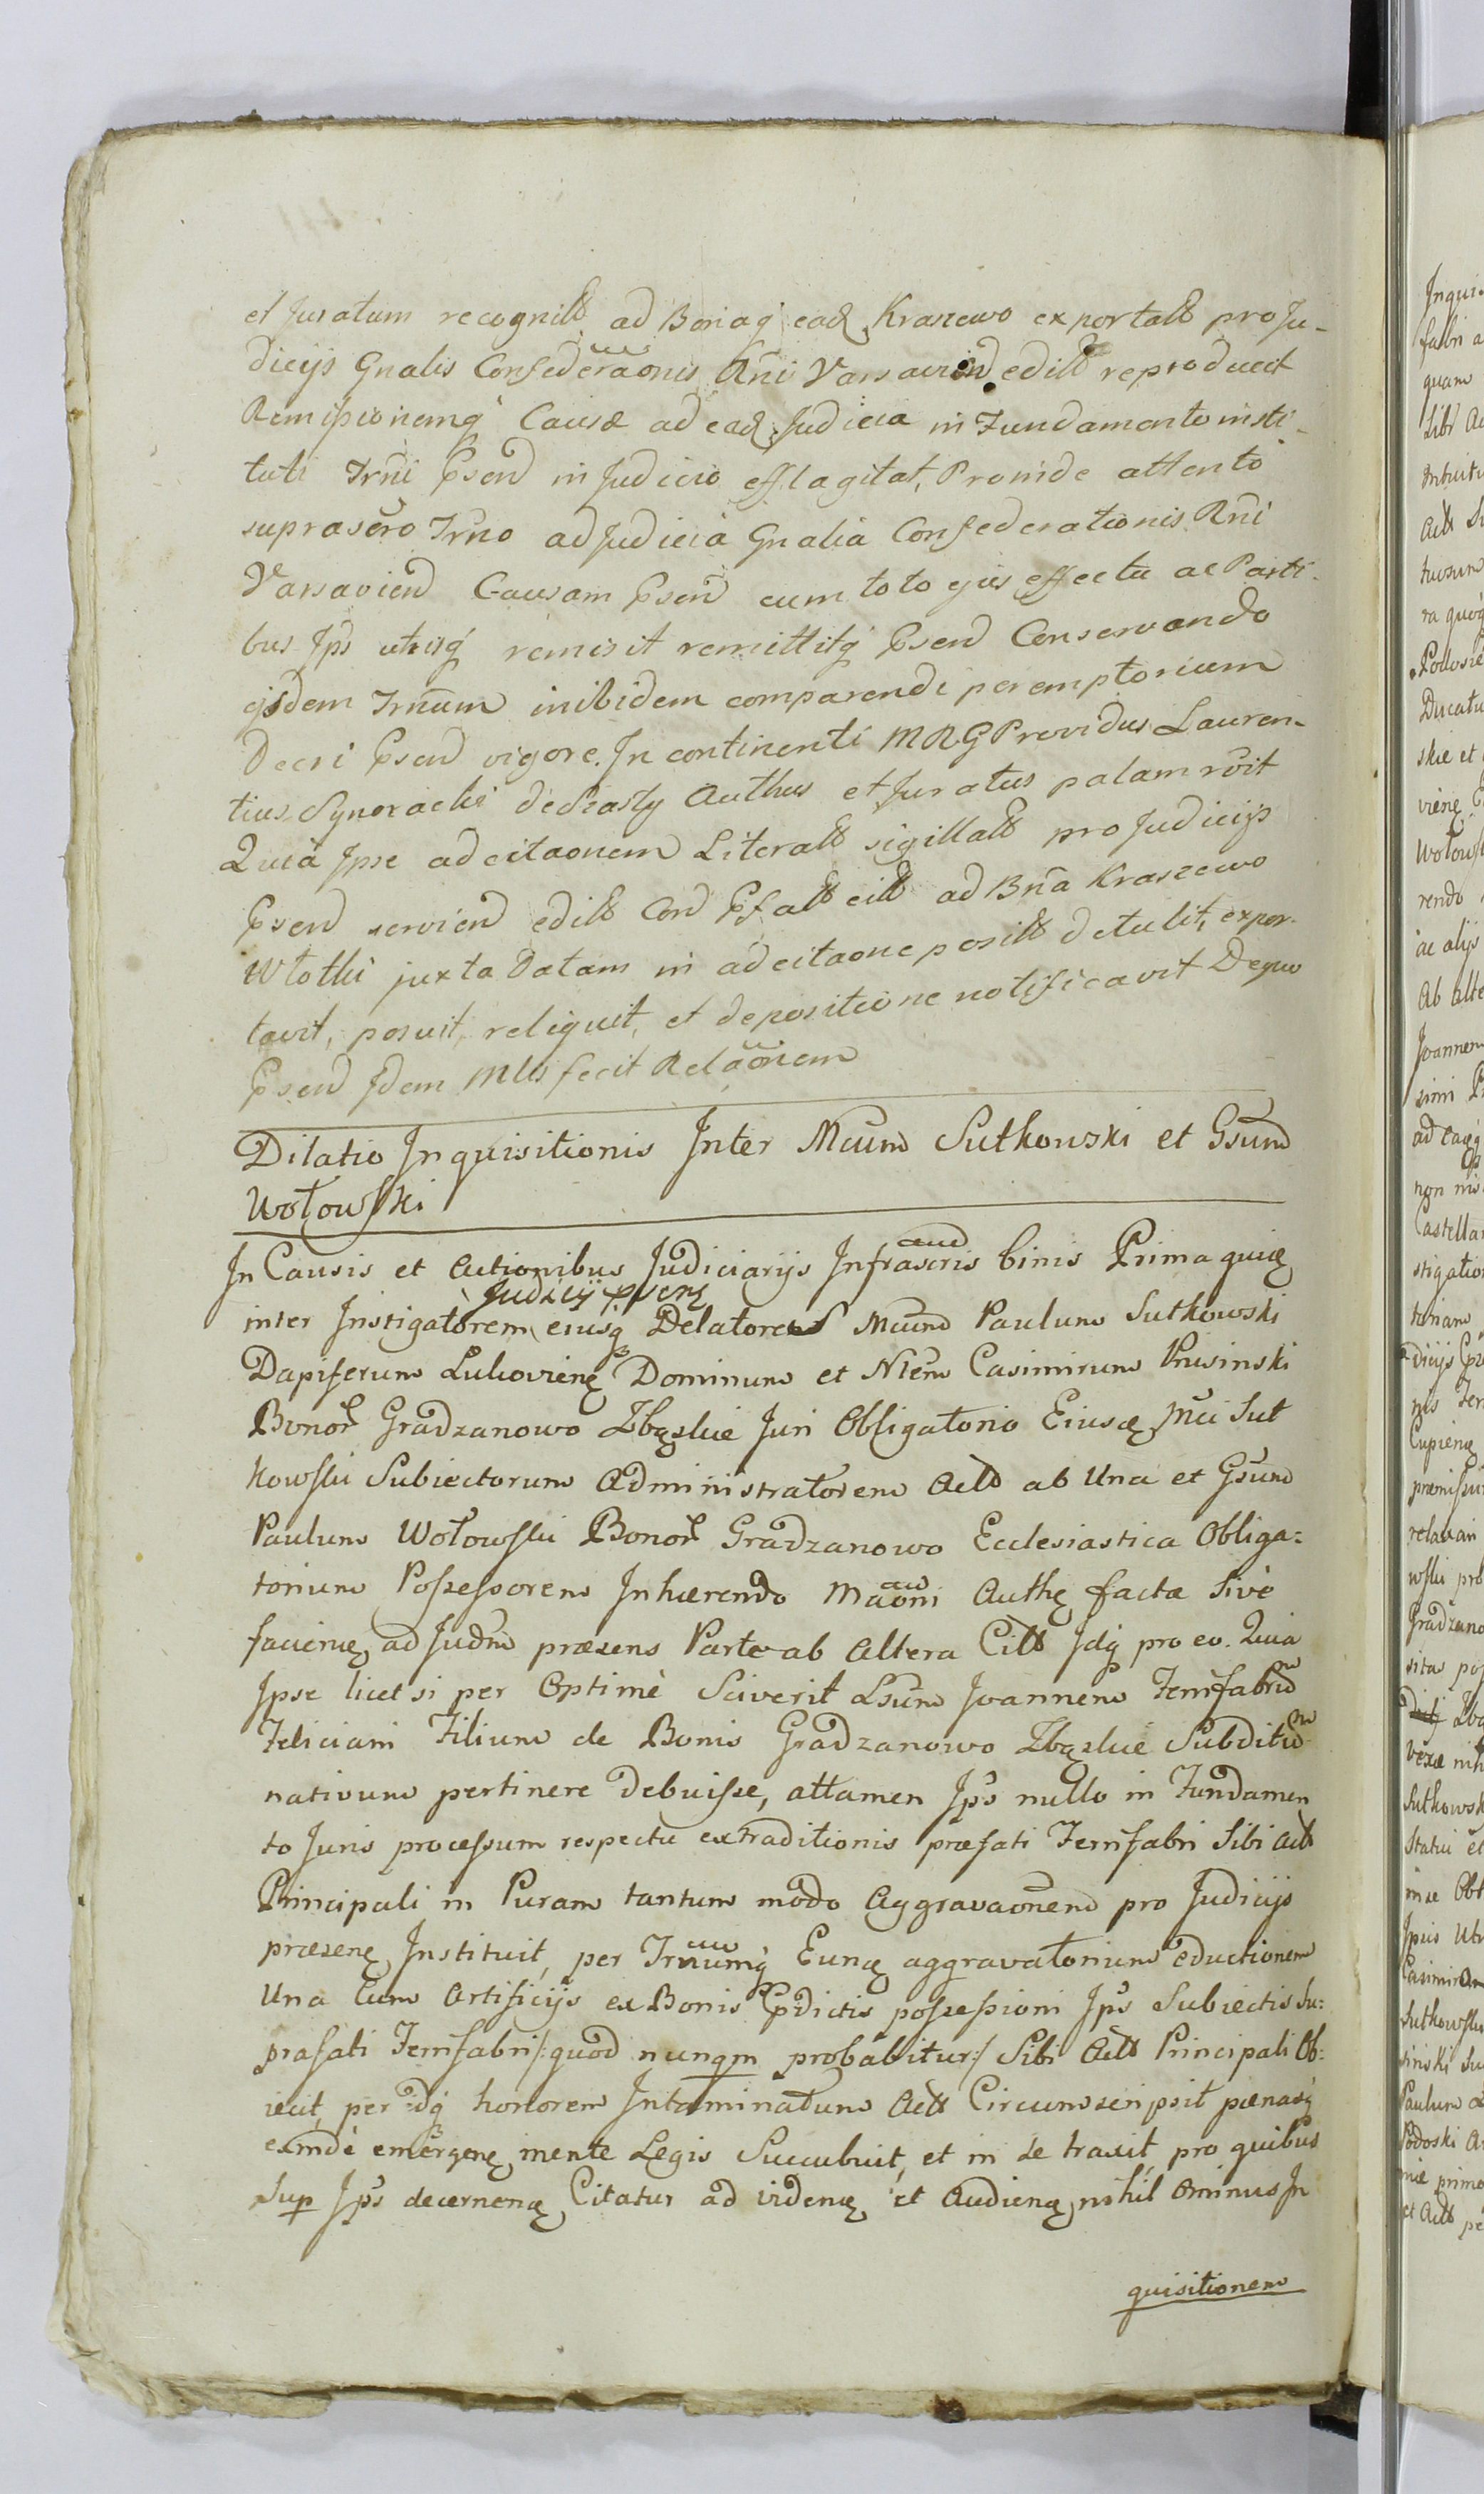 et Juratum recognitt ad Bonaq eade Kraszewo exportatt pro Ju-
dicijs Gnalis Confederãonis Rñi Varsaviend editt reproducit
Remissionemq Causæ ad eade Judicia in Fundamento insti-
tuti Trñi Psend in Judicio efflagitat, Proinde attento
suprascro Trño ad Judicia Gnalia Confederationis Rñi
Varsaviend Causam Psend cum toto ejus effectu ac Parti-
bus Jps utrisq remisit remittitq Psend Conservando
ijsdem Trñum inibidem comparendi peremptorium
Decri Psend vigore. In continenti MRG Providus Lauren-
tius Synoracki Authus et Juratus palam rõit
Quia Jpse adcitaonem Literatt sigillatt pro Judicijs
Psend serviend editt Cond Pfatt citt ad Bña Kraszewo
Wtotki juxta Datam in adcitaone positt detulit, expor-
tavit, posuit, reliquit, et depositione notificavit Dequo
Psend Jdem Mlis fecit Relãonem
Dilatio Inquisitionis Inter Mcum Sutkowski et Gsum
Wołowski
In Causis et Actionibus Judiciarijs Infrascris binis Prima quidē
Judicij psenē
inter Instigatorem eiusq Delatorem Mcum Paulum Sutkowski
Dapiferum Lukovienē Dominum et Nlem Casimirum Prusinski
Bonor Gradzanowo Zbęskie Juri Obligatorio Eiusdē Mci Sut
kowski Subiectorum Administratorem Actt ab Una et Gsum
Paulum Wołowski Bonor Gradzanowo Ecclesiastica Obliga=
torium Possessorem Inhærendo Mãoni Authē factæ sivè
faciendē ad Judm præsens Parte ab Altera Citt Jdq pro eo. Quia
Jpse licet si per Optimè Sciverit Lsum Joannem Ferrifabrum
Feliciani Filium de Bonis Gradzanowo Zbęskie Subditum
nativum pertinere debuisse, attamen Jps nullo in Fundamen
to Juris processum respectu extraditionis præfati Ferrifabri Sibi Actt
Principali in Puram tantum modo Aggravaõnem pro Judicijs
præsenē Instituit, per Trñumq Eundē aggravatorium eductionem
Una Cum Artificijs ex Bonis Pdictis possessioni Jps Subiectis Su=
prafati Ferrifabri /:quod nunqm probabitur:/ Sibi Actt Principali Ob=
iecit, per idq honorem Intaminatum Actt Circumscripsit pœnasq
exindè emergenē mente Legis Succubuit, et in se traxit, pro quibus
Sup Jps decernendē Citatur ad videndē et Audiendē nihil Ominus In
quisitionem